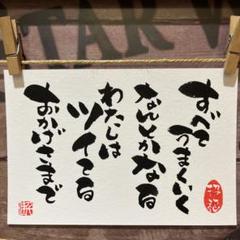 TAR W
すべて
うまくいく
なんとかなる
わたしは
ツイてる
おかげさまで